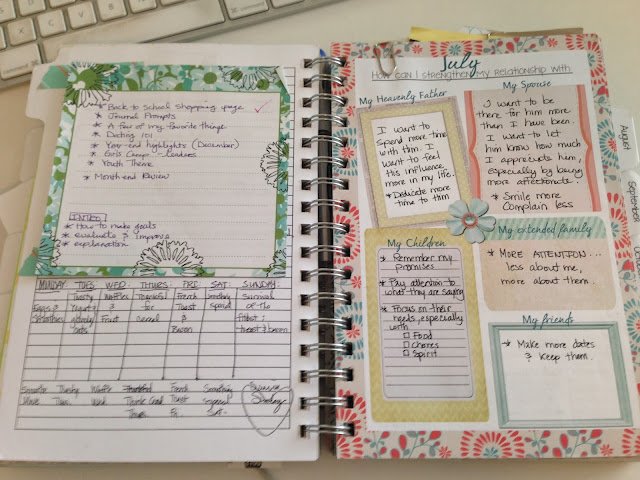 * Back to School Shopping page
* Journal Prompts
* A few of my favorite things
* Dating 101
* Year-end highlights (December)
* Girls Camp - Leaders
* Youth Theme
* Month-end Review
INTRO
* How to make goals
* evaluate & improve
* explanation
MONDAY TUES. WED. THURS. FRI SAT. SUNDAY
Toasty Waffles Thankful French Somebody Survival
Eggs & Yogurt & for Toast special of the
Smoothies Fruit Cereal & fittest:
Oats Bacon toast & bacon
Toasty Waffle Thankful French Something
Tues. Wed. Toast Special Sunday
Thurs. Fri. Sat.
July
How can I strengthen my relationship with
My Heavenly Father
I want to
Spend more time
with Him. I
want to feel
this influence
more in my life.
* Dedicate more
time to Him
My Spouse
I want to be
there for him more
than I have been.
I want to let
him know how much
I appreciate him,
especially by being
more affectionate.
* Smile more
Complain less
My Children
* Remember my
promises
* Pay attention to
what they are saying
* Focus on their
needs, especially
with
Food
Chores
Spirit
My extended family
* MORE ATTENTION...
less about me,
more about them.
My friends
* Make more dates
& keep them.
August
September